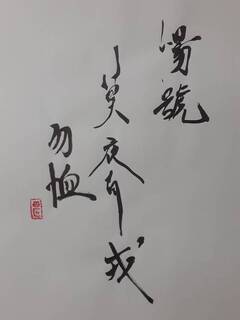 惕號
莫夜有戎
勿恤